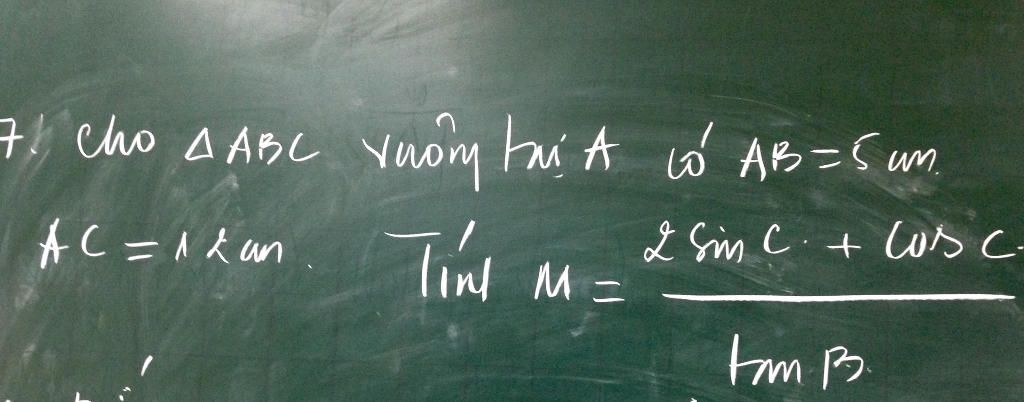 7! Cho △ABC vuông tại A có AB = 5 cm.
AC = 12 cm. Tính M = 2 Sin C. + Cos C.
tan B.